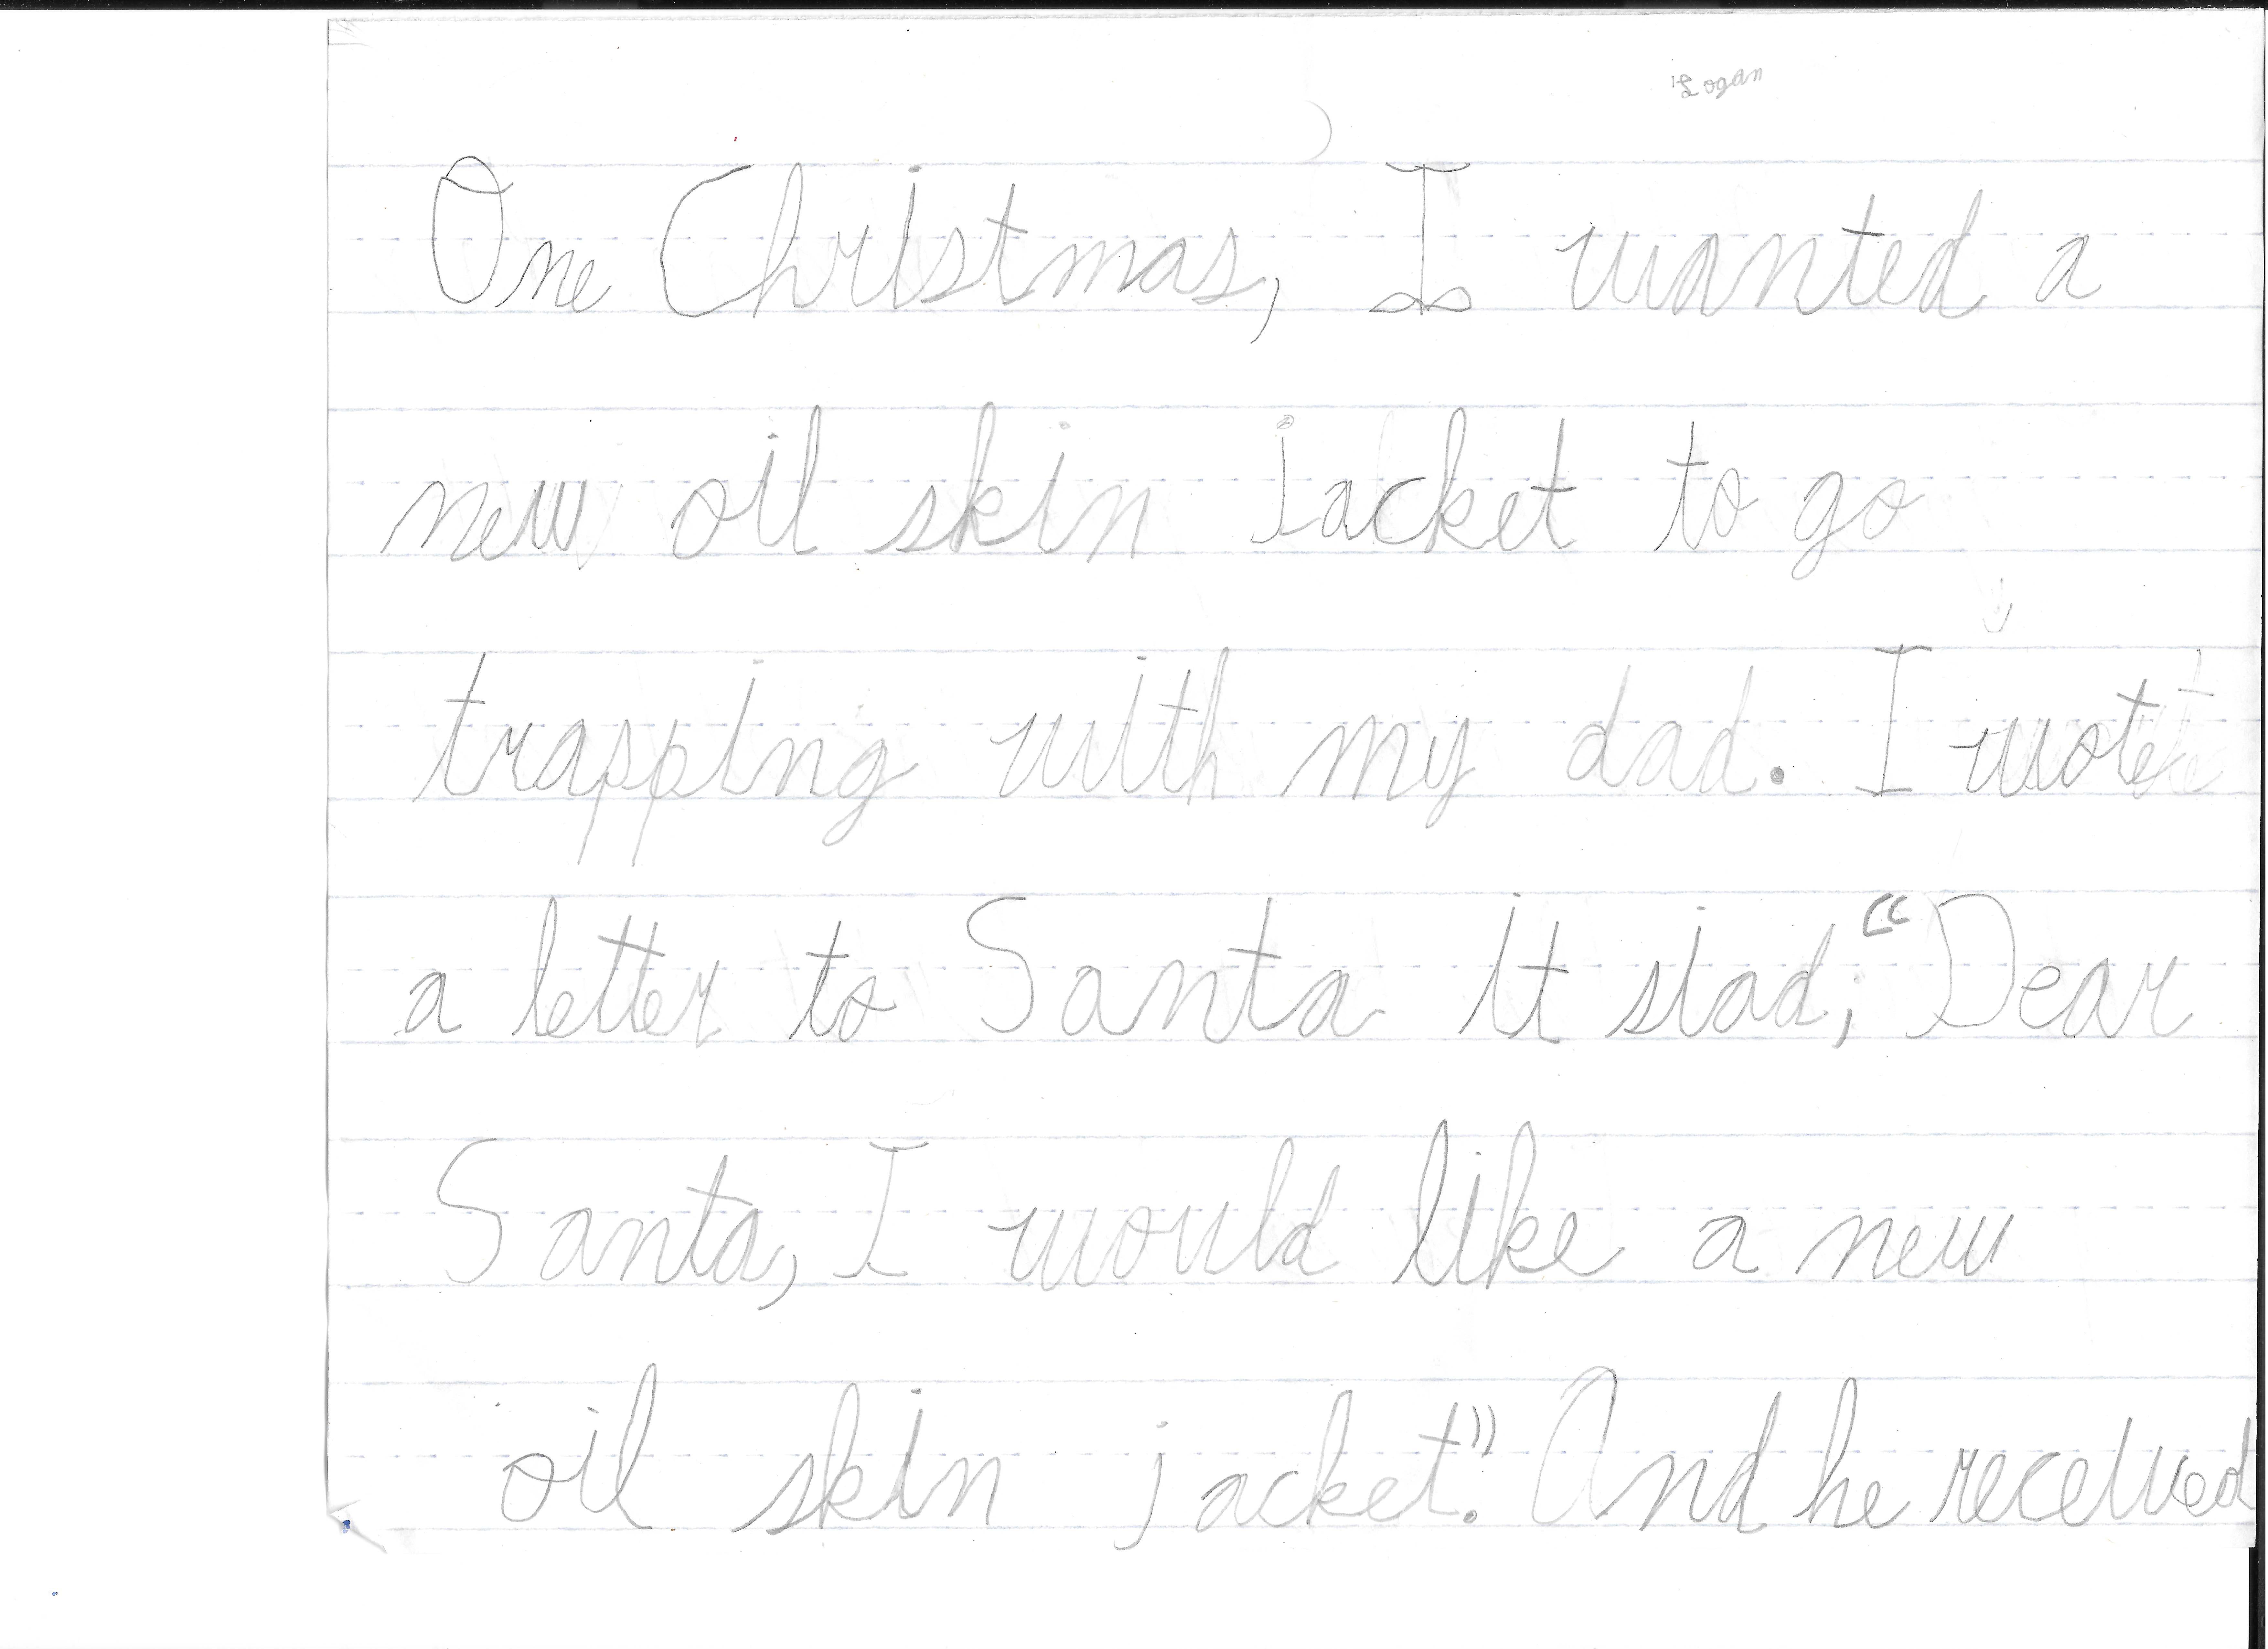 Logan
One Christmas, I wanted a
new oil skin jacket to go
trapping with my dad. I wote
a letter to Santa it siad, "Dear
Santa, I would like a new
oil skin jacket". And he received